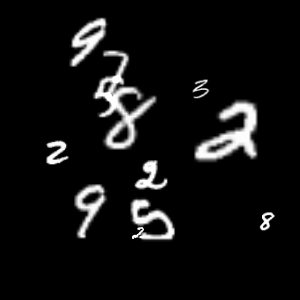 9
7
5 8
3
2
2
2
9
5
2
8